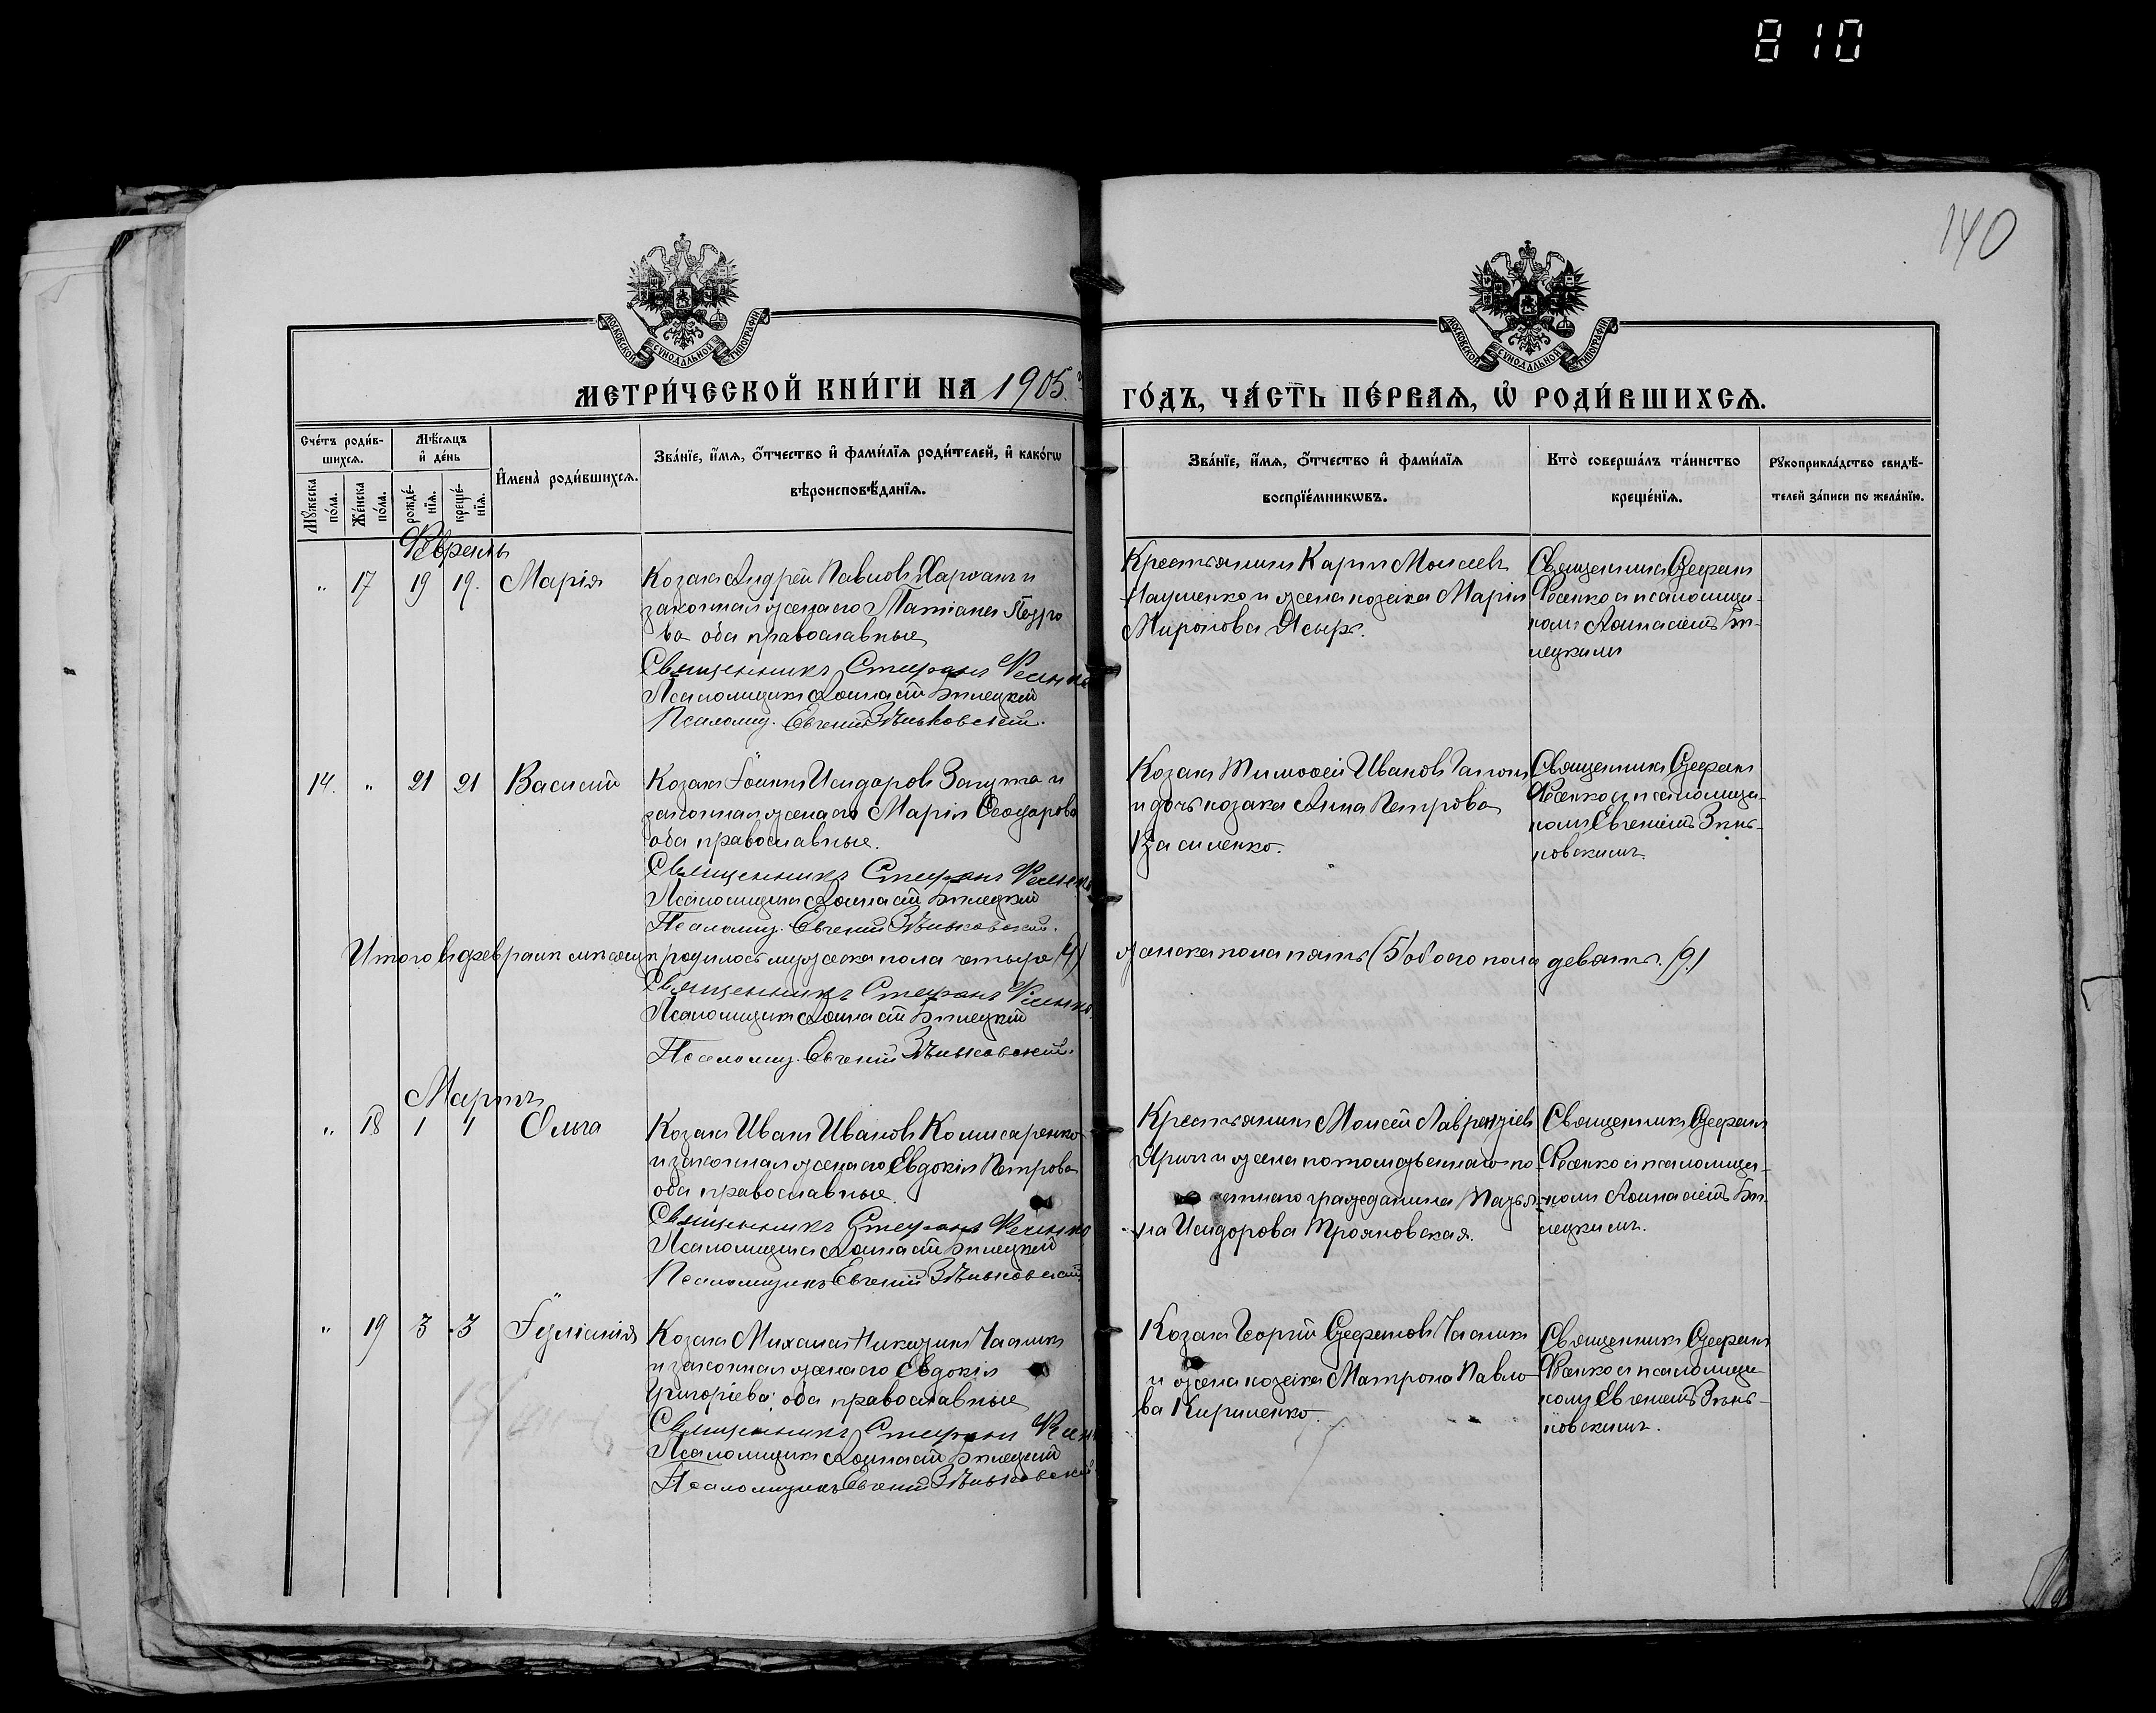 810
140
МОСКОВСКОЙ СУНОДАЛЬНОЙ ТИПОГРАФІИ
МОСКОВСКОЙ СУНОДАЛЬНОЙ ТИПОГРАФІИ
МЕТРИ́ЧЕСКОЙ КНИ́ГИ НА 1905 г. ГО́ДЪ, ЧА́СТЬ ПЕ́РВАЯ, Ѡ҆ РОДИ́ВШИХСЯ.
Сче́тъ роди́в-
шихся.
Мꙋ́жеска по́ла.
Же́нска по́ла.
Мѣ́сяцъ
и҆ де́нь
рожде́-
нїя.
креще́-
нїя.
И҆мена̀ роди́вшихся.
Зва́нїе, и҆́мя, ѻ҆́тчество и҆ фами́лїя роди́телей, и҆ како́гѡ
вѣроисповѣ́данїя.
Зва́нїе, и҆́мя, ѻ҆́тчество и҆ фами́лїя
воспрїе́мникѡвъ.
Кто̀ соверша́лъ та́инство
креще́нїя.
Рꙋкоприкла́дство свидѣ́-
телей за́писи по жела́нїю.
Февраль
" 17 19 19. Марія
Козакъ Андрей Павловъ и
законная жена его Татіана
ва оба православные
Священникъ Стефанъ Фесенко
Псаломщикъ Аѳанасій Билецкій
Псаломщ. Евгений Зѣньковскій.
Крестьянинъ Карпъ Моисеевъ
Науменко и жена козака Марія
Миронова
Священникъ Стефанъ
Фесенко съ псаломщи-
комъ Аѳанасіемъ Би-
лецкимъ
14. " 21 21 Василій
Козакъ Іоаннъ Исидоровъ и
законная жена его Марія Ѳеодорова
оба православные.
Священникъ Стефанъ Фесенко
Псаломщикъ Аѳанасій Билецкій
Псаломщ. Евгеній Зѣньковскій.
Козакъ Тимоѳей Ивановъ
и дочь козака Анна Петрова
Василенко.
Священникъ Стефанъ
Фесенко съ псаломщи-
комъ Евгеніемъ Зѣнь-
ковскимъ.
Итого въ февралѣ мѣсяцѣ родилось мужеска пола четыре (4) женска пола пять (5) обоего пола девять. (9)
Священникъ Стефанъ Фесенко
Псаломщикъ Аѳанасій Билецкій
Псаломщ. Евгеній Зѣньковскій.
Мартъ
" 18 1 1 Ольга
Козакъ Иванъ Ивановъ Комисаренко
и законная жена его Евдокія Петрова
оба православные.
Священникъ Стефанъ Фесенко
Псаломщикъ Аѳанасій Билецкій
Псаломщикъ Евгеній Зѣньковскій
Крестьянинъ Моисей Лаврентіевъ
и жена потомственнаго по-
четнаго гражданина
на Исидорова Трояновская.
Священникъ Стефанъ
Фесенко съ псаломщи-
комъ Аѳанасіемъ Би-
лецкимъ.
" 19 3 3 Іуліанія
Козакъ Михаилъ
и законная жена его Евдокія
Григоріева; оба православные
Священникъ Стефанъ
Псаломщикъ Аѳанасій Билецкій
Псаломщикъ Евгеній Зѣньковскій
Козакъ Георгій Стефановъ
и жена козака Матрона Павло-
ва Кириленко.
Священникъ Стефанъ
Фесенко съ псаломщи-
комъ Евгеніемъ Зѣнь-
ковскимъ.